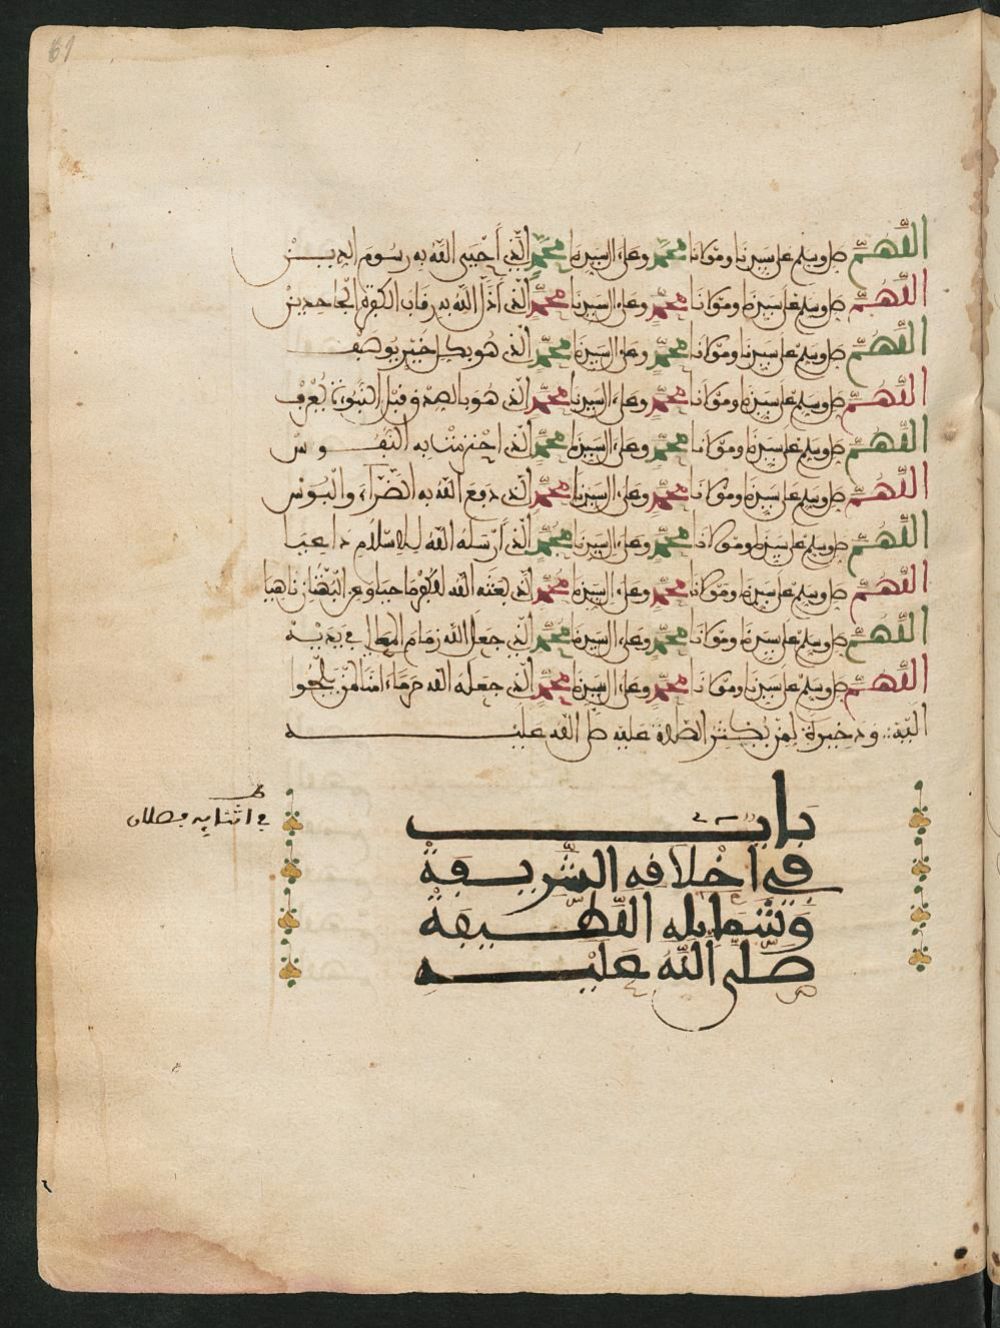 اللَّهُمَّ صل وسلم على سيدنا ومولانا محمد وعلى ال سيدنا محمد الذي أحيى الله به رسوم الدين
اللَّهُمَّ صل وسلم على سيدنا ومولانا محمد وعلى ال سيدنا محمد الذي أذل الله به رقاب الكفرة الجاحدين
اللَّهُمَّ صل وسلم على سيدنا ومولانا محمد وعلى ال سيدنا محمد الذي هو بكل خير يوصف
اللَّهُمَّ صل وسلم على سيدنا ومولانا محمد وعلى ال سيدنا محمد الذي هو بالصدق قبل النبوءة يعرف
اللَّهُمَّ صل وسلم على سيدنا ومولانا محمد وعلى ال سيدنا محمد الذي به النفوس
اللَّهُمَّ صل وسلم على سيدنا ومولانا محمد وعلى ال سيدنا محمد الذي دفع الله به الضراء والبوس
اللَّهُمَّ صل وسلم على سيدنا ومولانا محمد وعلى ال سيدنا محمد الذي أرسله الله للاسلام داعيا
اللَّهُمَّ صل وسلم على سيدنا ومولانا محمد وعلى ال سيدنا محمد الذي بعثه الله وعن البهتان ناهيا
اللَّهُمَّ صل وسلم على سيدنا ومولانا محمد وعلى ال سيدنا محمد الذي جعل الله زمام في يديه
اللَّهُمَّ صل وسلم على سيدنا ومولانا محمد وعلى ال سيدنا محمد الذي جعله الله حرما ءامنا لمن يلجئوا
اليه وذخيرة لمن يكثر الصلاة عليه صلى الله عليه
باب
في اخلاقه الشريفة
وشمايله اللطيفة
صلى الله عليه
61